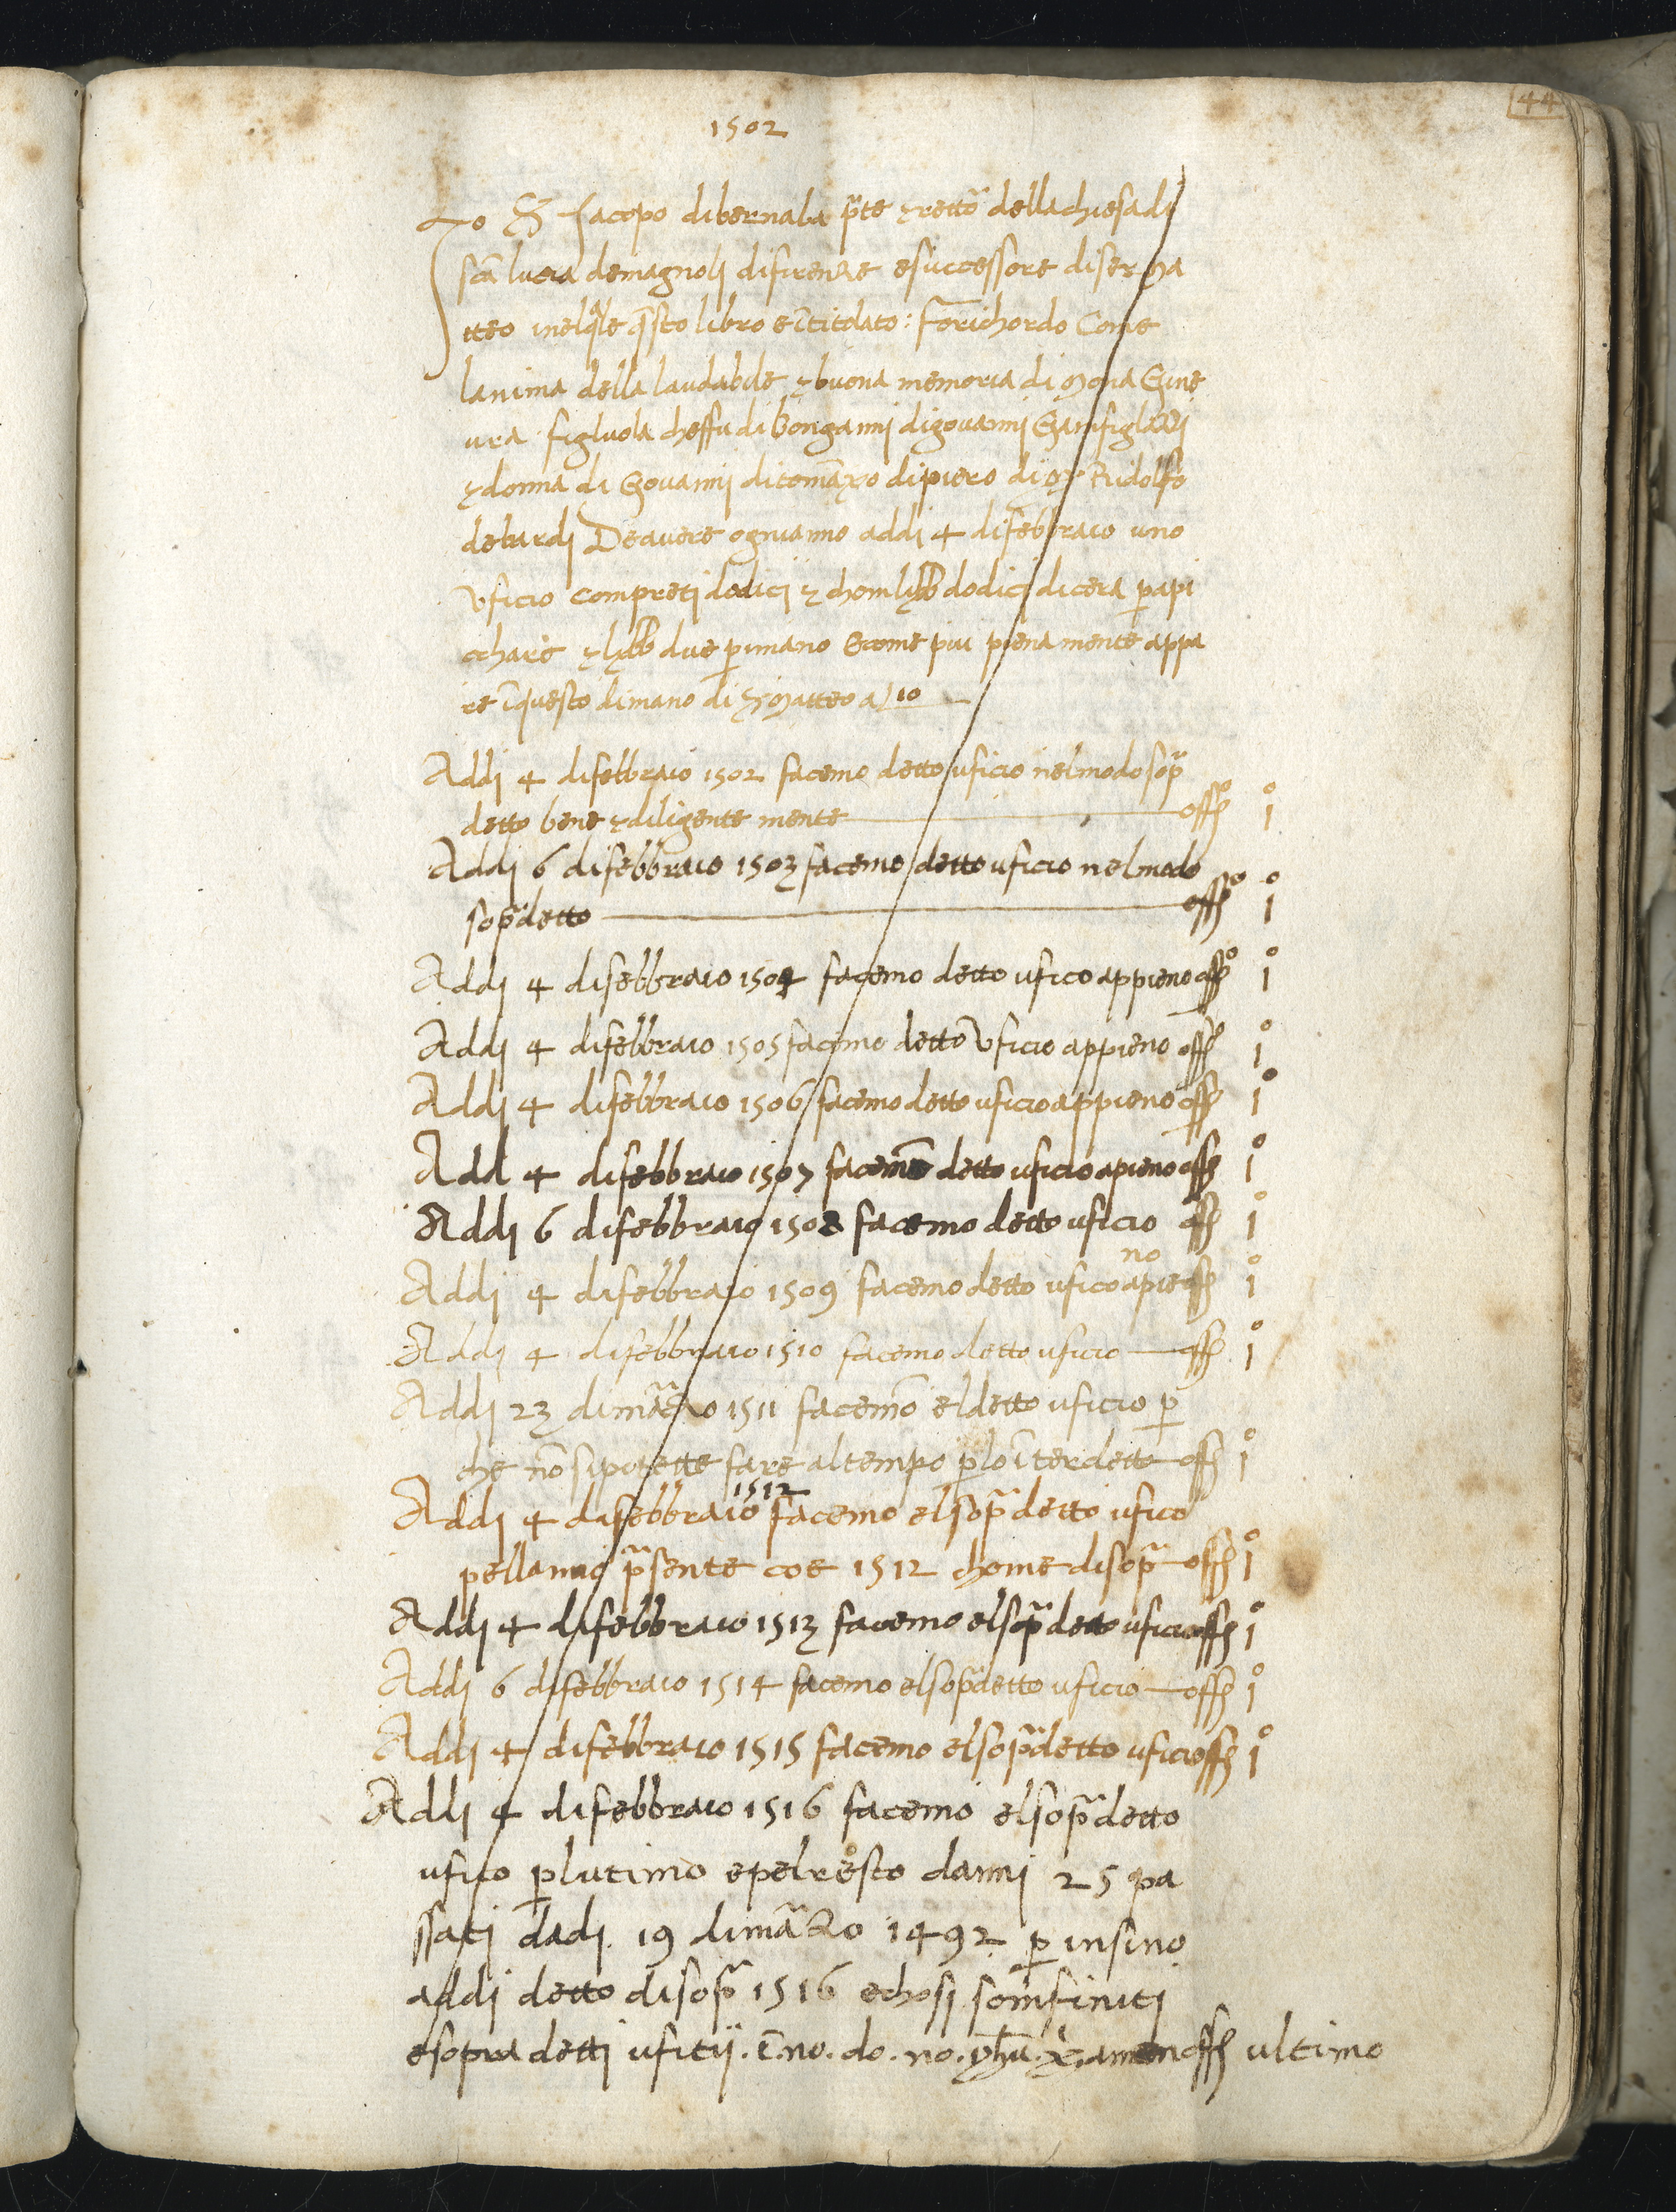 44
1502
Io S Jacopo di bernaba p̄te ⁊ rettoᷓ della chiesa di
scā lucia demagnolj difirenze esuccessore diser Ma
tteo inelq̄le q̄sto libro e ītitolato: Fo richordo Come
lanima della laudabile ⁊ buona memoria di Mona Gine
vra figluola cheffu di bongannj digovannj Gianfigliazzi
⁊ donna di Giovannj ditomaxo dipiero di Mʳ Ridolfo
debardj De avere ognianno addi 4 difebbraio uno
Uficio compretj dodicj ⁊ chon libb dodicj dicera p̱ api
cchare ⁊ libb due p̱ imano E come piu piena mente appa
re ī questo dimano di S Matteo a 10
Addi 4 difebbraio 1502 facemo detto uficio nelmodo sopᷓ
detto bene ⁊ diligente mente offº i°
Addj 6 difebbraio 1503 facemo detto uficio nelmodo
sopᷓdetto offº i°
Addj 4 difebbraio 1504 facemo detto ufico appieno offº i°
Addj 4 difebbraio 1505 facemo detto Uficio appieno offº i°
Addj 4 difebbraio 1506 facemo detto uficio appieno offº i°
Add 4 difebbraio 1507 facemo detto uficio apieno offº i°
Addj 6 difebbraio 1508 facemo detto uficio offº i°
no
Addj 4 difebbraio 1509 facemo detto ufico apie offº i°
Addj 4 difebbraio 1510 facemo detto uficio offº i°
Addj 23 di maᷓzo 1511 facemo eldetto uficio p̱
che nō sipotette fare altempo p̱ lo īterdetto offº i°
1512
Addj 4 difebbraio facemo elsopᷓdetto ufico
pellanno pᷓsente coe 1512 chome disopᷓ offº i°
Addj 4 difebbraio 1513 facemo elsopᷓdetto uficio offº i°
Addj 6 difebbraio 1514 facemo elsopᷓdetto uficio offº i°
Addj 4 difebbraio 1515 facemo elsopᷓdetto uficio offº i°
Addj 4 difebbraio 1516 facemo elsopᷓdetto
ufico p̱ lutimo epelresto dannj 25 pa
ssatj dadj 19 dimaᷓzo 1492 p̱ insino
addj detto disopᷓ 1516 echosj somfinitj
esopra dettj ufitij . ī . no . do . no . yhu . x . amen offº ultimo